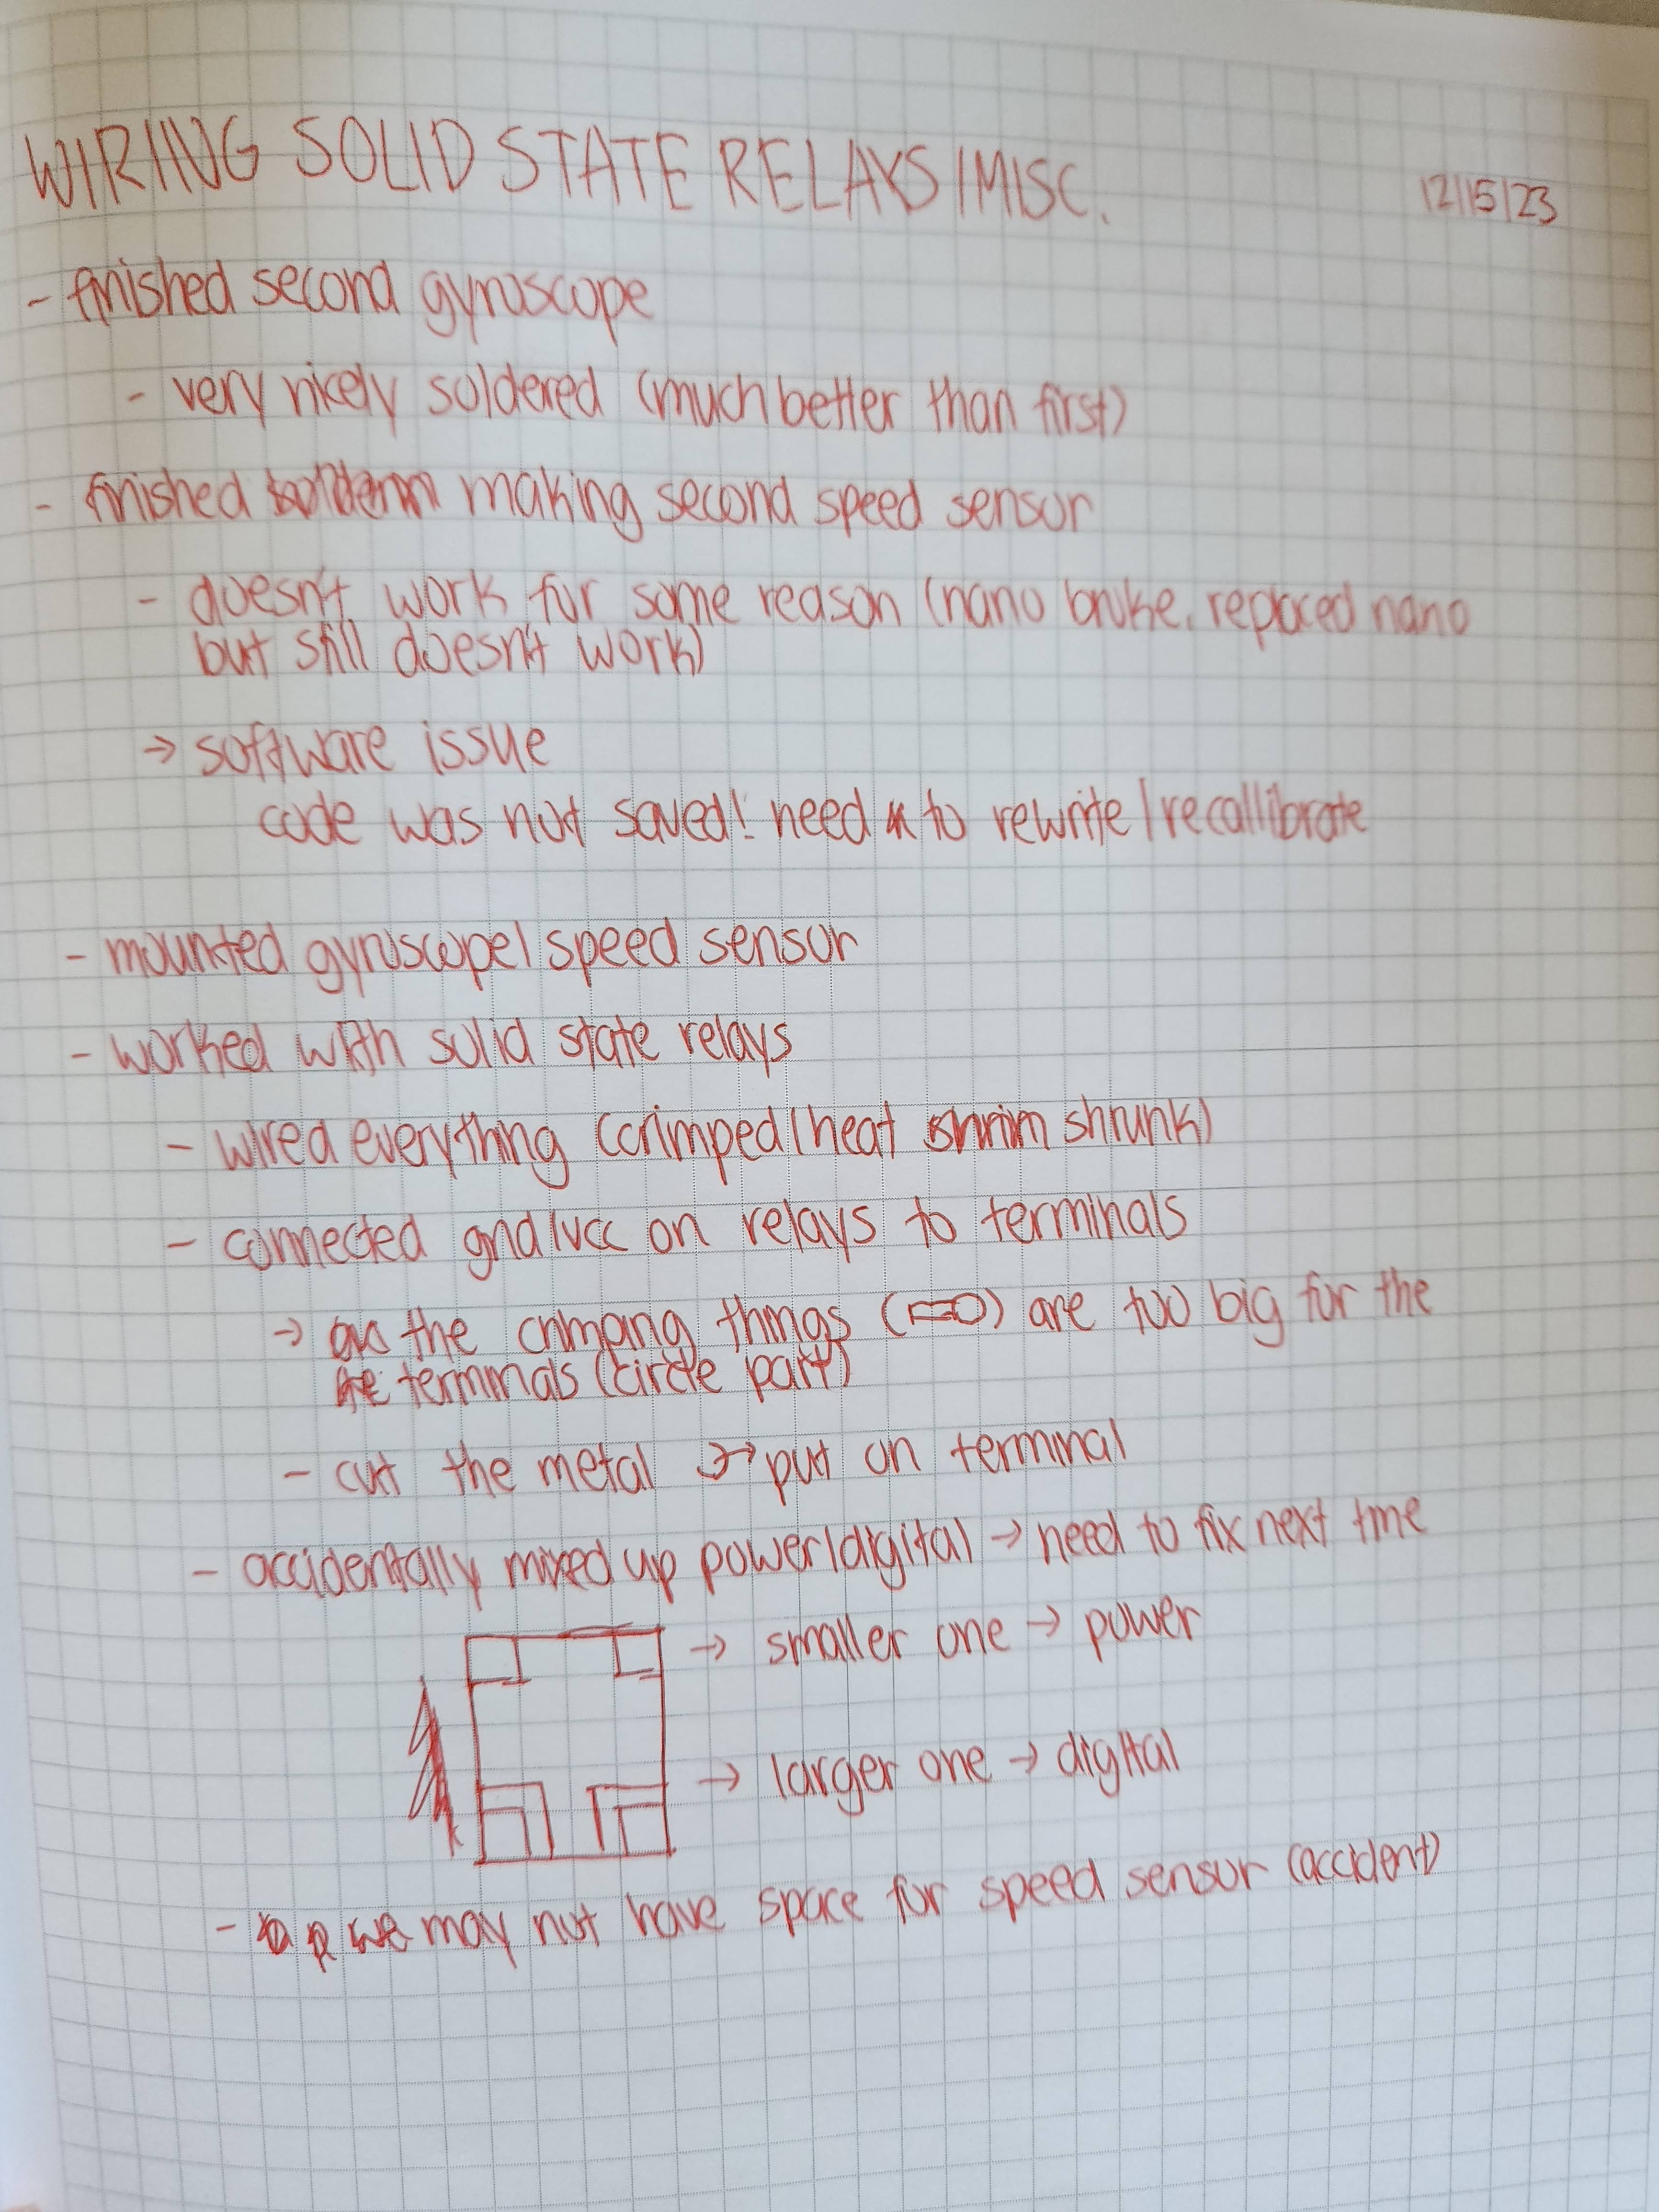 WIRING SOLID STATE RELAYS/MISC.
12/15/23
- finished second gyroscope
- very nicely soldered (much better than first)
- finished making second speed sensor
- doesn't work for some reason (nano broke, replaced nano
but still doesn't work)
→ software issue
code was not saved! need to rewrite/recallibrate
- mounted gyroscope/speed sensor
- worked with solid state relays
- wired everything (crimped/heat shrunk)
- connected gnd/vcc on relays to terminals
→ the crimping things ( ) are too big for the
terminals (circle part)
- cut the metal → put on terminal
- accidentally mixed up power/digital → need to fix next time
→ smaller one → power
→ larger one → digital
- we may not have space for speed sensor (accident)